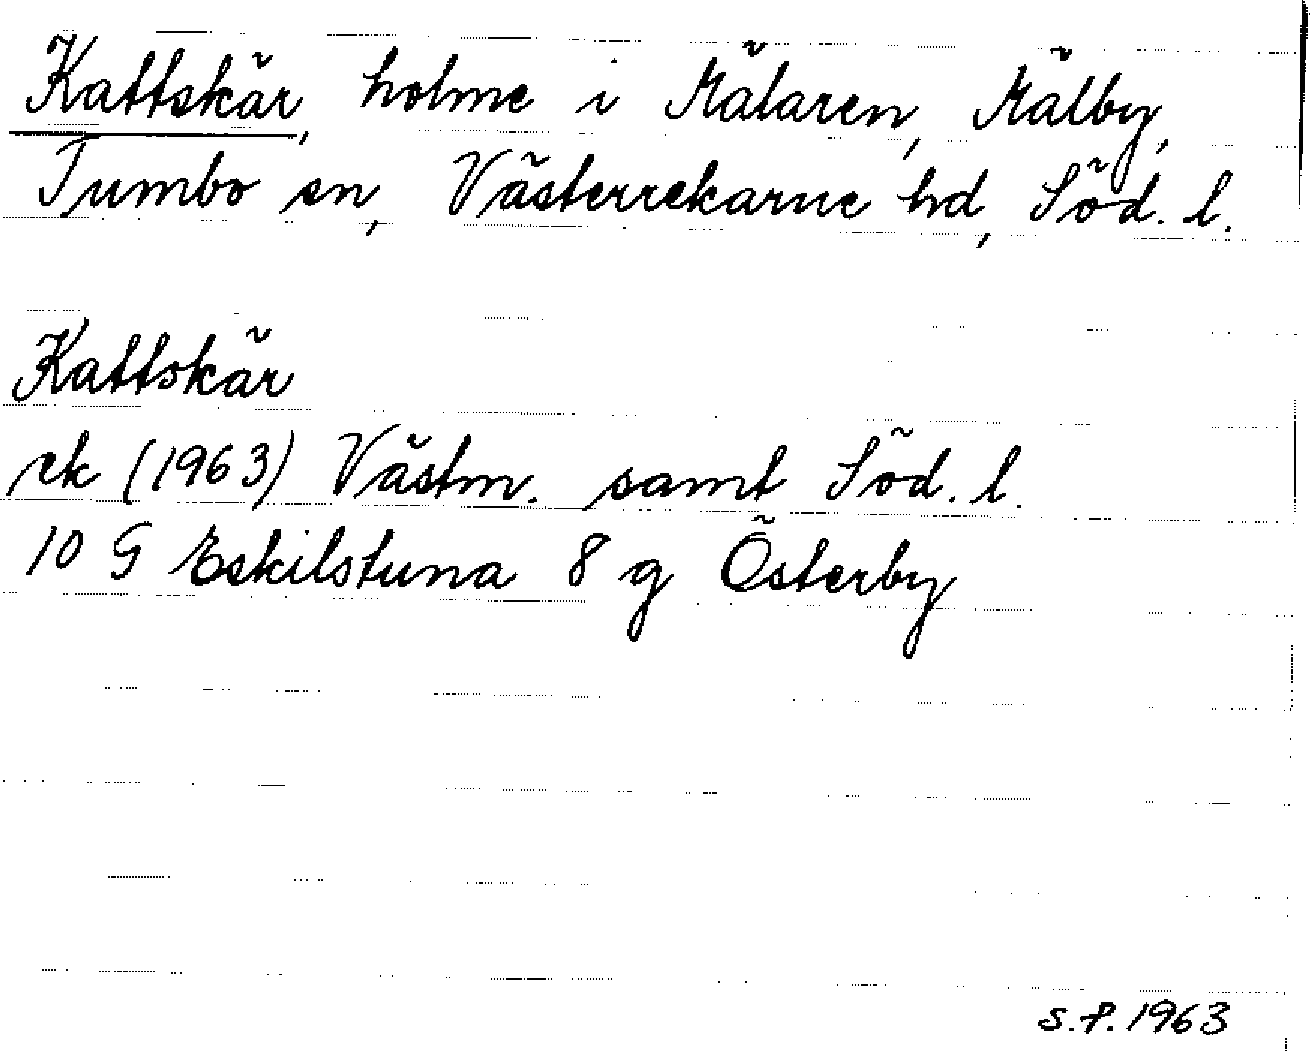 Kattskär, holme i Mälaren, Mälby,
Tumbo sn, Västerrekarne hd, Söd. l.
Kattskär
ek (1963) Västm. samt Söd. l.
10 G Eskilstuna 8 g Österby
S.P. 1963